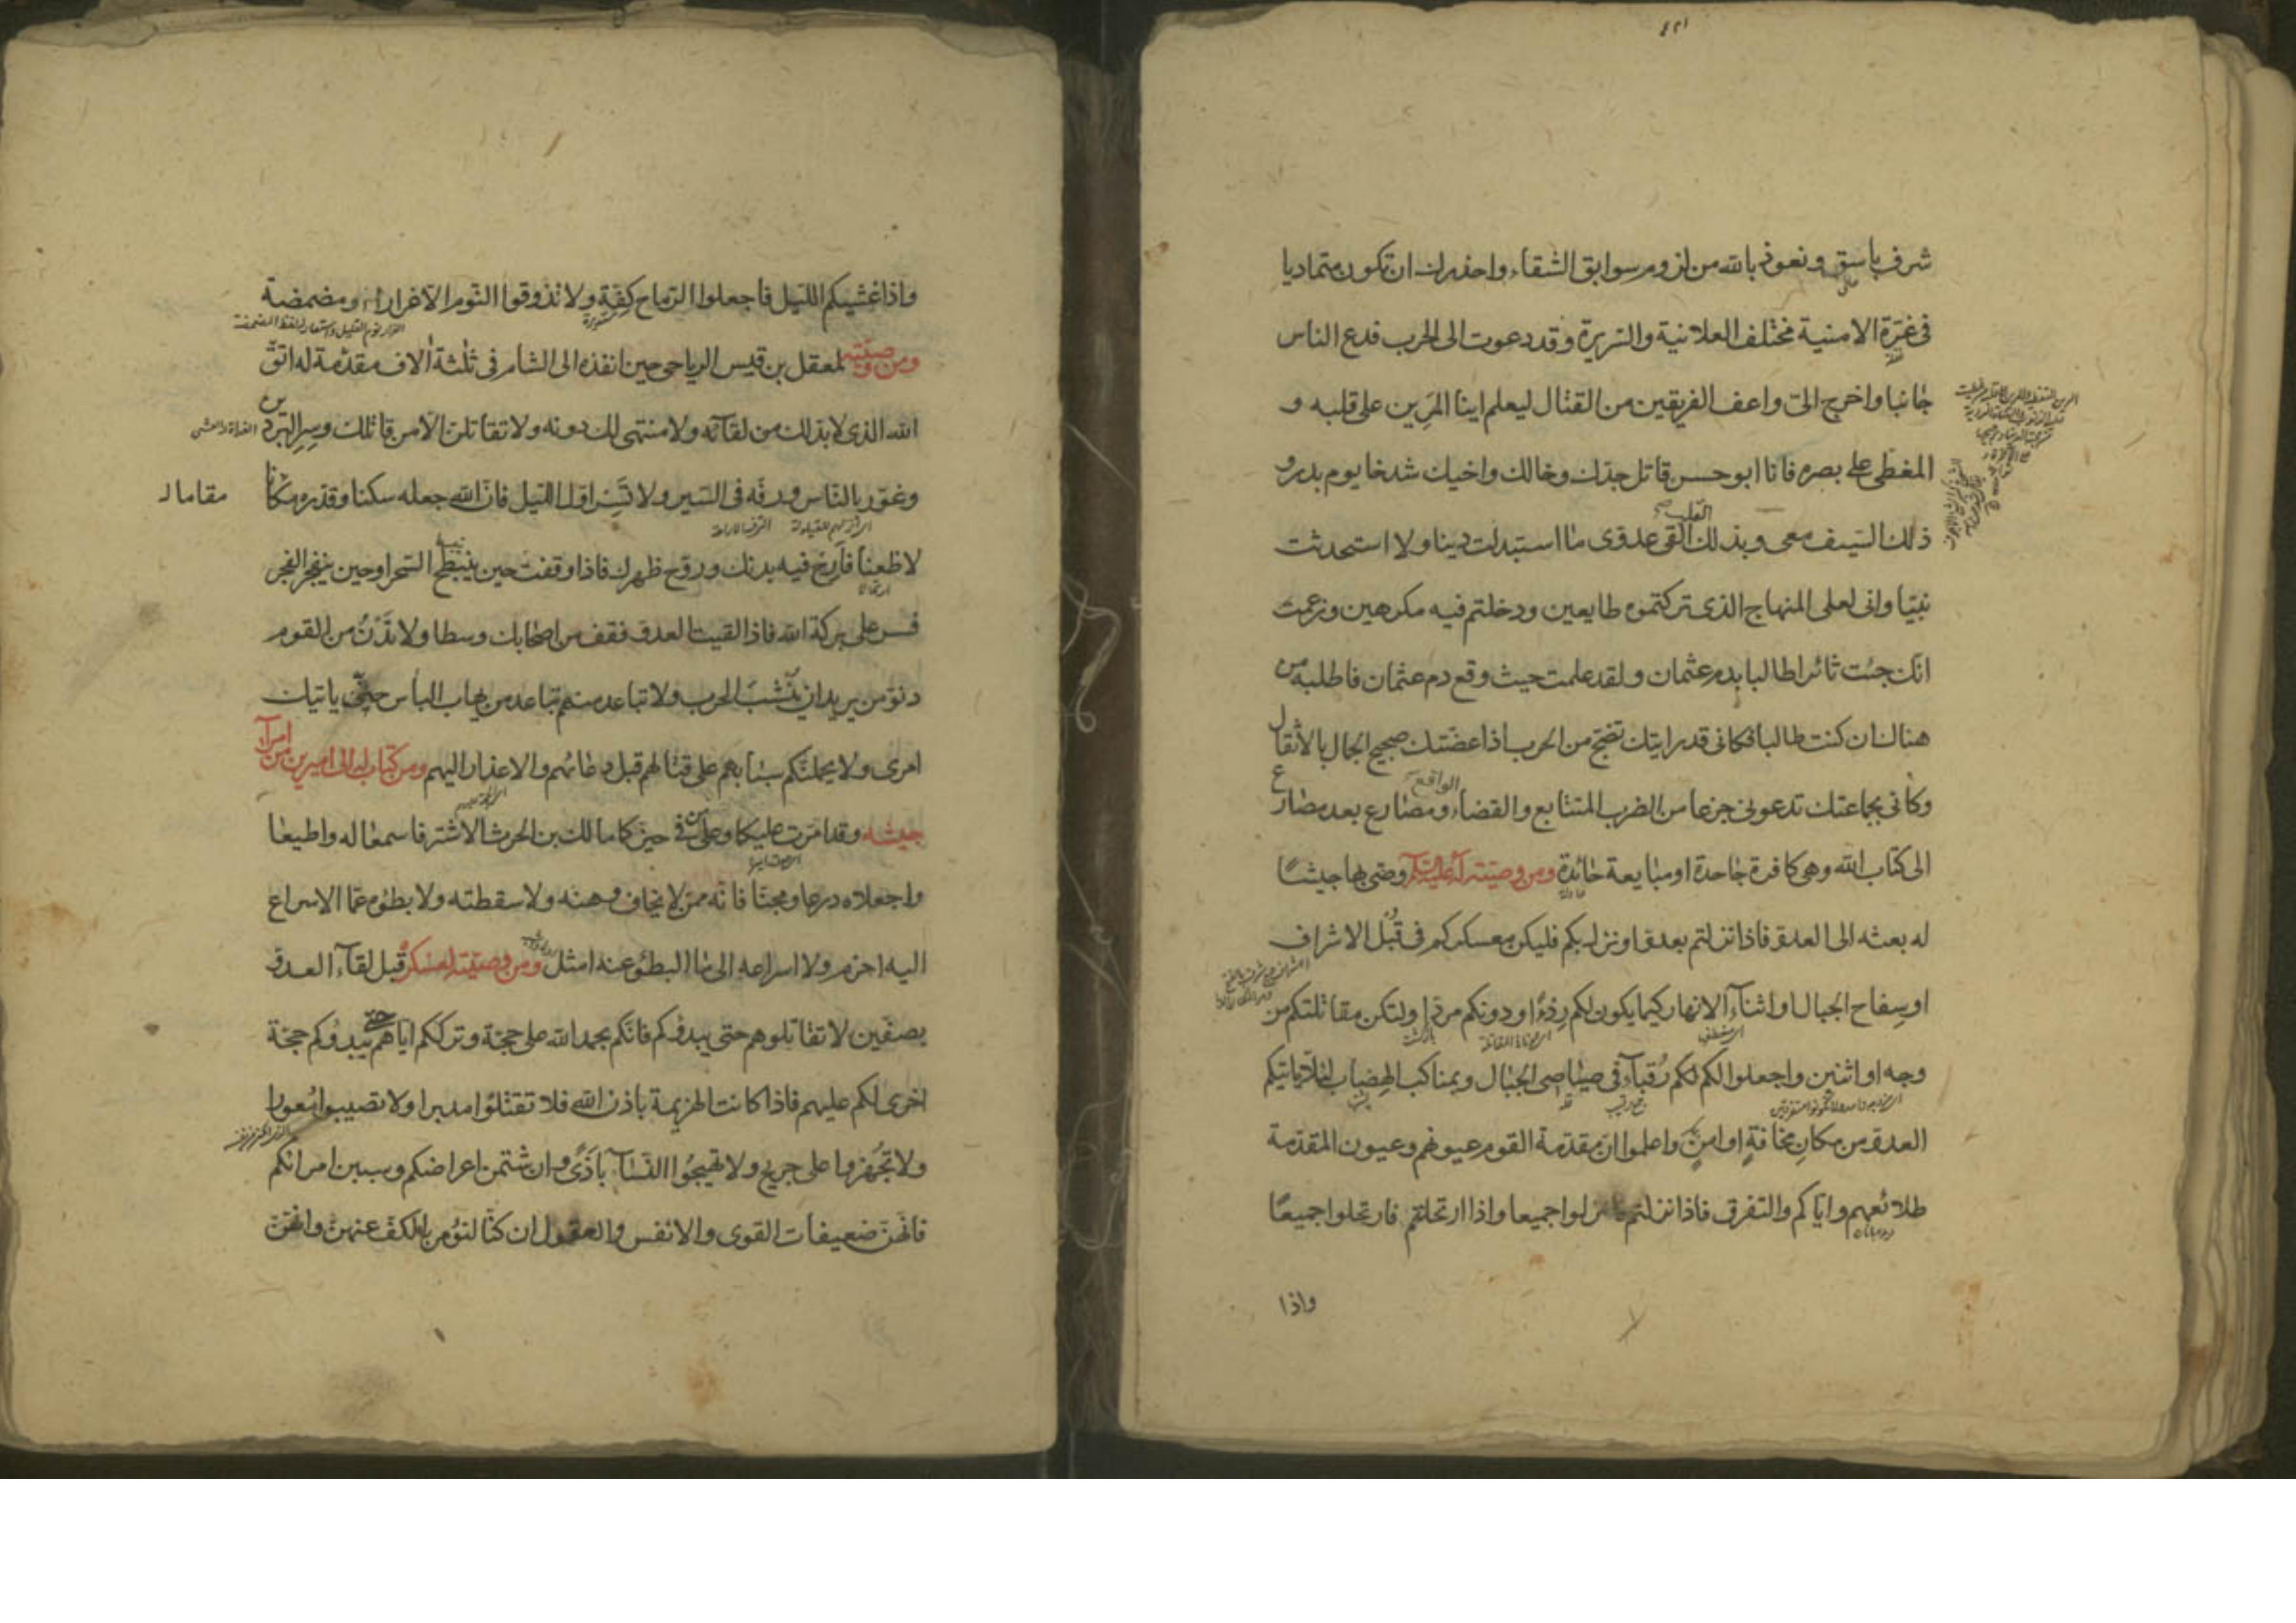 شرف باسق ونعوذ بالله من لزوم سوابق الشقاء واحذرك ان تكون متماديا
فى غرّة الامنية مختلف العلانية والسريرة وقد دعوت الى الحرب فدع الناس
جانبا واخرج الىّ واعف الفريقين من القتال ليعلم اينا المرين على قلبه و
المغطى على بصره فانا ابو حسن قاتل جدّك وخالك واخيك شدخا يوم بدر و
ذلك السّيف معى وبذلك القلب القى عدوّى ما استبدلت دينا ولا استحدثت
نبيّا وانى لعلى المنهاج الذى تركتموه طايعين ودخلتم فيه مكرهين وزعمت
انّك جئت ثائرا طالبا بدم عثمان ولقد علمت حيث وقع دم عثمان فاطلبه من
هناك ان كنت طالبا فكانى قد رايتك تضجّ من الحرب اذا عضّتك ضجيج الجمال بالأثقال
وكأنى بجماعتك تدعونى جزعا من الضرب المتتابع والقضاء الواقع ومصارع بعد مصارع
الى كتاب الله وهى كافرة جاحدة او مبايعة حائدة ومن وصيّته له عليه السّلام وصّى بها جيشًا
له بعثه الى العدوّ فاذا نزلتم بعدوّ او نزل بكم فليكن معسكركم فى قُبُل الاشراف
او سِفاح الجبال او اثناء الانهار كيما يكون لكم رِدْءًا ودونكم مردّا ولتكن مقاتلتكم من
وجه او اثنين واجعلوا لكم رُقباء فى صياصى الجبال وبمناكب الهِضاب لئلّا ياتيكم
العدوّ من مكان مخافةٍ او امنٍ واعلموا انّ مقدّمة القوم عيونهم وعيون المقدّمة
طلائعهم وايّاكم والتفرق فاذا نزلتم فانزلوا جميعا واذا ارتحلتم فارتحلوا جميعًا
واذا
واذا غشيكم الليل فاجعلوا الرّماح كِفّة ولا تذوقوا النّوم الّا غرارا او مضمضة
ومن وصيّته لمعقل بن قيس الرياحى حين انفذه الى الشام فى ثلثة آلاف مقدّمة له اتق
الله الذى لا بدّ لك من لقائه ولا منتهى لك دونه ولا تقاتلنّ الّا من قاتلك وسِرِ البردين
وغوّر بالنّاس ورفّه فى السّير ولا تَسِر اوّل الليل فانّ الله جعله سكنا وقدّره مقاما لا
لا ظعنا فأرِح فيه بدنك وروّح ظهرك فاذا وقفت حين ينبطح السّحر او حين ينفجر الفجر
فسر على بركة الله فاذا لقيت العدوّ فقف من اصحابك وسطا ولا تَدْنُ من القوم
دنوّ من يريد ان يُنشب الحرب ولا تباعد منهم تباعد من يهاب الباس حتّى ياتيك
امرى ولا يحملنّكم شنأنهم على قتالهم قبل دعائهم والاعذار اليهم ومن كتاب له الى اميرين من امرآء
جيشه وقد امّرت عليكما وعلى من فى حيّزكما مالك بن الحرث الاشتر فاسمعا له واطيعا
واجعلاه درعا ومجنّا فانّه ممّن لا يخاف وهنه ولا سقطته ولا بطؤه عمّا الاسراع
اليه احزم ولا اسراعه الى ما البطؤ عنه امثل ومن وصيّته لعسكره قبل لقآء العدوّ
بصفّين لا تقاتلوهم حتى يبدؤكم فانّكم بحمد الله على حجّة وترككم ايّاهم حتى يبدؤكم حجّة
اخرى لكم عليهم فاذا كانت الهزيمة باذن الله فلا تقتلوا مدبرا ولا تصيبوا مُعورا
ولا تُجهزوا على جريح ولا تهيجُوا النّسآء بأذًى وان شتمن اعراضكم وسببن امرائكم
فانّهنّ ضعيفات القوى والانفس والعقول ان كنّا لنؤمر بالكفّ عنهنّ وانّهنّ